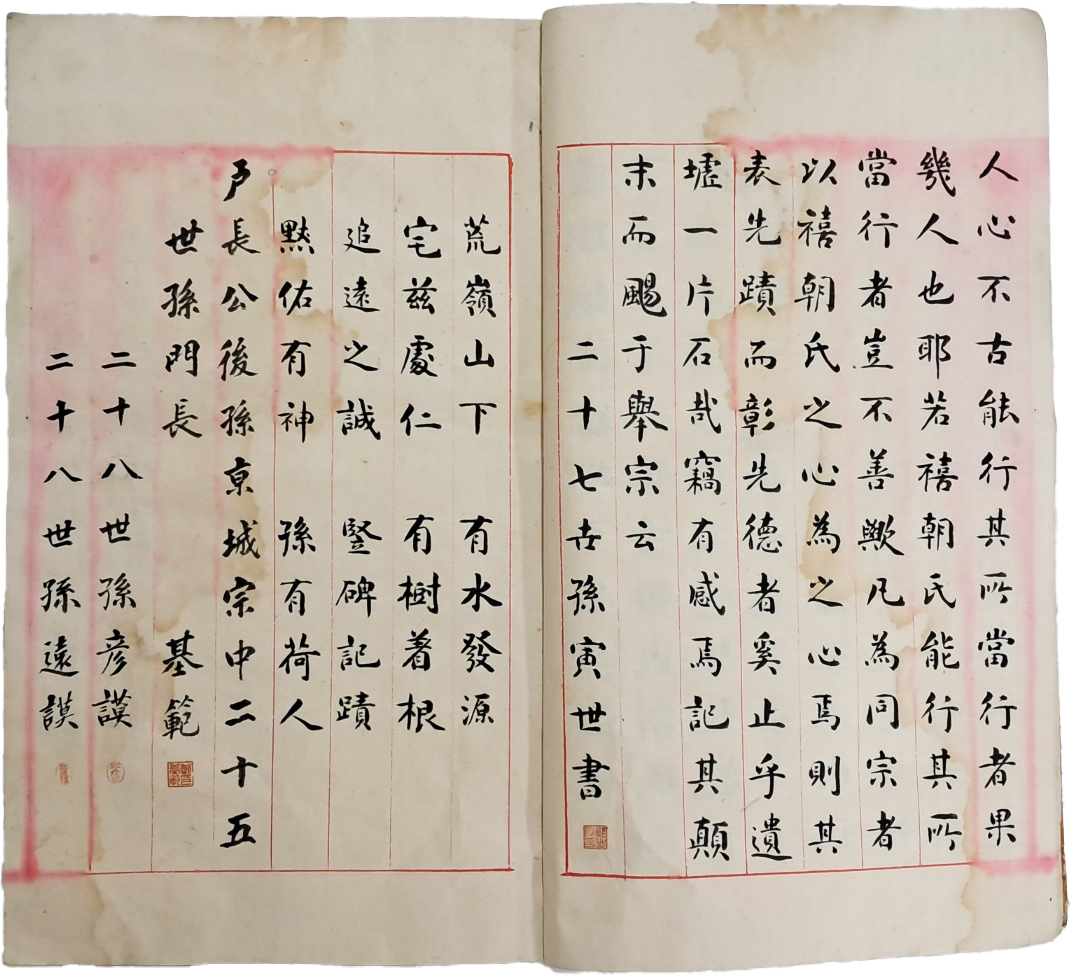 人心不古能行其所當行者果
幾人也耶若禧朝氏能行其所
當行者豈不善歟凡為同宗者
以禧朝氏之心為之心焉則其
表先蹟而彰先德者奚止乎遺
墟一片石哉竊有感焉記其顛
末而颺于舉宗云
二十七世孫寅世書
荒嶺山下 有水發源
宅兹處仁 有樹着根
追遠之誠 竪碑記蹟
黙佑有神 孫有荷人
戶長公後孫京城宗中二十五
世孫門長 基範
二十八世孫彦謨
二十八世孫遠謨